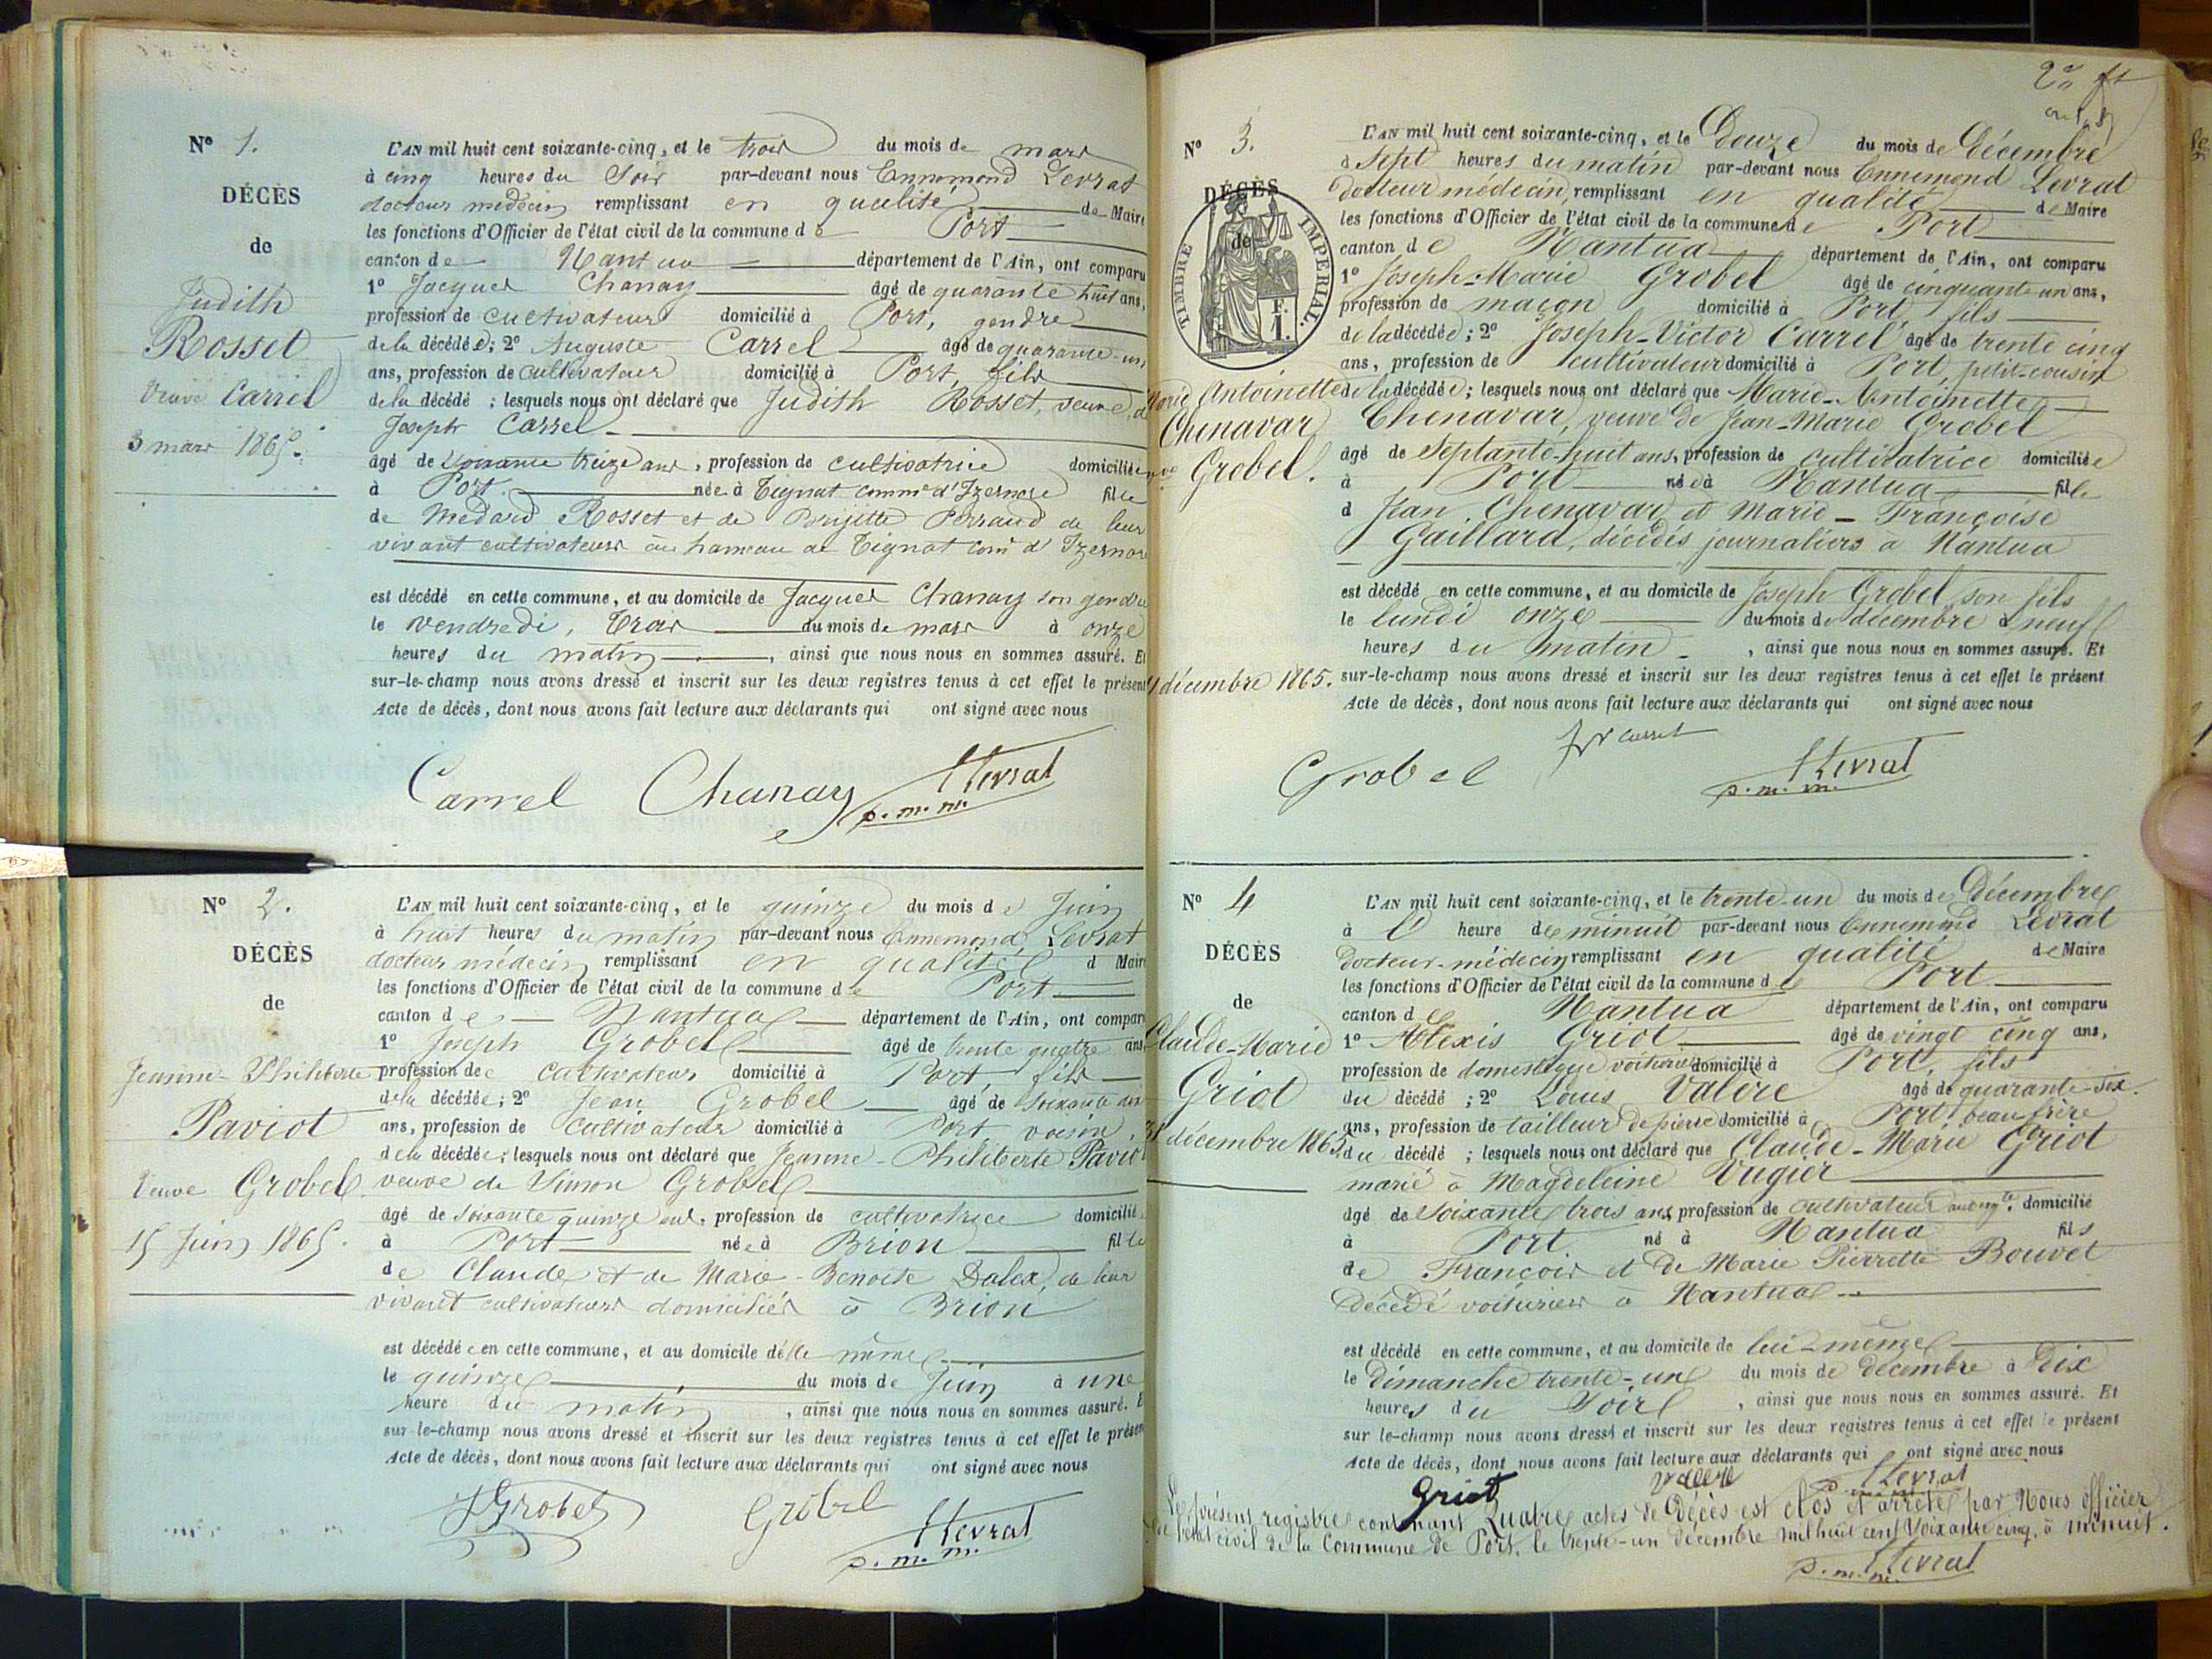 N° 1.
DÉCÈS
de
Judith
Rosset
Veuve Carrel
3 mars 1865.
L'AN mil huit cent soixante-cinq, et le trois du mois de mars
à cinq heures du Soir par-devant nous Ennemond Levrat
docteur médecin remplissant en qualité de Maire
les fonctions d'Officier de l'état civil de la commune de Port
canton de Nantua département de l'Ain, ont comparu
1° Jacques Chanay âgé de quarante huit ans,
profession de cultivateur domicilié à Port, gendre
de la décédée; 2° Auguste Carrel âgé de quarante-un
ans, profession de cultivateur domicilié à Port, fils
de la décédé ; lesquels nous ont déclaré que Judith Rosset, veuve d
Joseph Carrel
âgé de soixante treize ans, profession de cultivatrice domiciliée
à Port née à Tignat comne d'Izernore fille
de Médard Rosset et de Brijitte Perraud de leur
vivant cultivateurs au hameau de Tignat com d'Izernor
est décédé en cette commune, et au domicile de Jacques Chanay son gendre
le vendredi, trois du mois de mars à onze
heures du matin, ainsi que nous nous en sommes assuré. Et
sur-le-champ nous avons dressé et inscrit sur les deux registres tenus à cet effet le présent
Acte de décès, dont nous avons fait lecture aux déclarants qui ont signé avec nous
Carrel Chanay Levrat
p.m.m.
N° 2.
DÉCÈS
de
Jeanne-Philiberte
Paviot
Veuve Grobel
15 Juin 1865.
L'AN mil huit cent soixante-cinq, et le quinze du mois de Juin
à huit heures du matin par-devant nous Ennemond Levrat
docteur médecin remplissant en qualité d Maire
les fonctions d'Officier de l'état civil de la commune de Port
canton de Nantua département de l'Ain, ont comparu
1° Joseph Grobel âgé de trente quatre ans
profession de cultivateur domicilié à Port, fils
de la décédée; 2° Jean Grobel âgé de soixante dix
ans, profession de cultivateur domicilié à Port voisin,
de la décédée; lesquels nous ont déclaré que Jeanne-Philiberte Paviot
veuve de Simon Grobel
âgé de soixante quinze ans, profession de cultivatrice domicilié
à Port née à Brion fille
de Claude et de Marie-Benoite Dalex, de leur
vivant cultivateurs domiciliés à Brion
est décédée en cette commune, et au domicile d'elle même
le quinze du mois de Juin à une
heure du matin, ainsi que nous nous en sommes assuré. E
sur-le-champ nous avons dressé et inscrit sur les deux registres tenus à cet effet le présen
Acte de décès, dont nous avons fait lecture aux déclarants qui ont signé avec nous
JGrobel Grobel Levrat
p.m.m.
N° 3.
DÉCÈS
de
TIMBRE IMPERIAL
F.
1.
Marie Antoinette
Chenavar
Vve Grobel.
11 décembre 1865.
L'AN mil huit cent soixante-cinq, et le Douze du mois de Décembre
à Sept heures du matin par-devant nous Ennemond Levrat
docteur médecin, remplissant en qualité de Maire
les fonctions d'Officier de l'état civil de la commune de Port
canton de Nantua département de l'Ain, ont comparu
1° Joseph-Marie Grobel âgé de cinquante un ans,
profession de maçon domicilié à Port fils
de la décédée; 2° Joseph-Victor Carrel âgé de trente cinq
ans, profession de cultivateur domicilié à Port, petit-cousin
de la décédée; lesquels nous ont déclaré que Marie-Antoinette
Chenavar, veuve de Jean-Marie Grobel
âgé de Septante-huit ans, profession de cultivatrice domiciliée
à Port née à Nantua fille
d Jean Chenavar et Marie-Françoise
Gaillard, décédés journaliers à Nantua
est décédé en cette commune, et au domicile de Joseph Grobel son fils
le lundi onze du mois de décembre à neuf
heures du matin, ainsi que nous nous en sommes assuré. Et
sur-le-champ nous avons dressé et inscrit sur les deux registres tenus à cet effet le présent
Acte de décès, dont nous avons fait lecture aux déclarants qui ont signé avec nous
Grobel Carrel Levrat
p.m.m.
N° 4
DÉCÈS
de
Claude-Marie
Griot
31 décembre 1865.
L'AN mil huit cent soixante-cinq, et le trente-un du mois de Décembre
à l' heure de minuit par-devant nous Ennemond Levrat
Docteur-médecin remplissant en qualité de Maire
les fonctions d'Officier de l'état civil de la commune de Port
canton de Nantua département de l'Ain, ont comparu
1° Alexis Griot âgé de vingt cinq ans,
profession de domestique voiturier domicilié à Port, fils
du décédé ; 2° Louis Valère âgé de quarante-six
ans, profession de tailleur de pierre domicilié à Port beau frère
du décédé ; lesquels nous ont déclaré que Claude-Marie Griot
marié à Magdeleine Vugier
âgé de soixante trois ans, profession de cultivateur aubergte. domicilié
à Port né à Nantua fils
de François et de Marie Pierrette Bouvet
décédé voiturier à Nantua
est décédé en cette commune, et au domicile de lui-même
le Dimanche trente-un du mois de décembre à Dix
heures du Soir, ainsi que nous nous en sommes assuré. Et
sur le-champ nous avons dressé et inscrit sur les deux registres tenus à cet effet le présent
Acte de décès, dont nous avons fait lecture aux déclarants qui ont signé avec nous
Griot Valère Levrat
Le présent registre contenant Quatre actes de Décès est clos et arrêté par Nous officier
de l'état civil de la Commune de Port, le trente-un décembre mil huit cent soixante cinq, à minuit.
p.m.m. Levrat